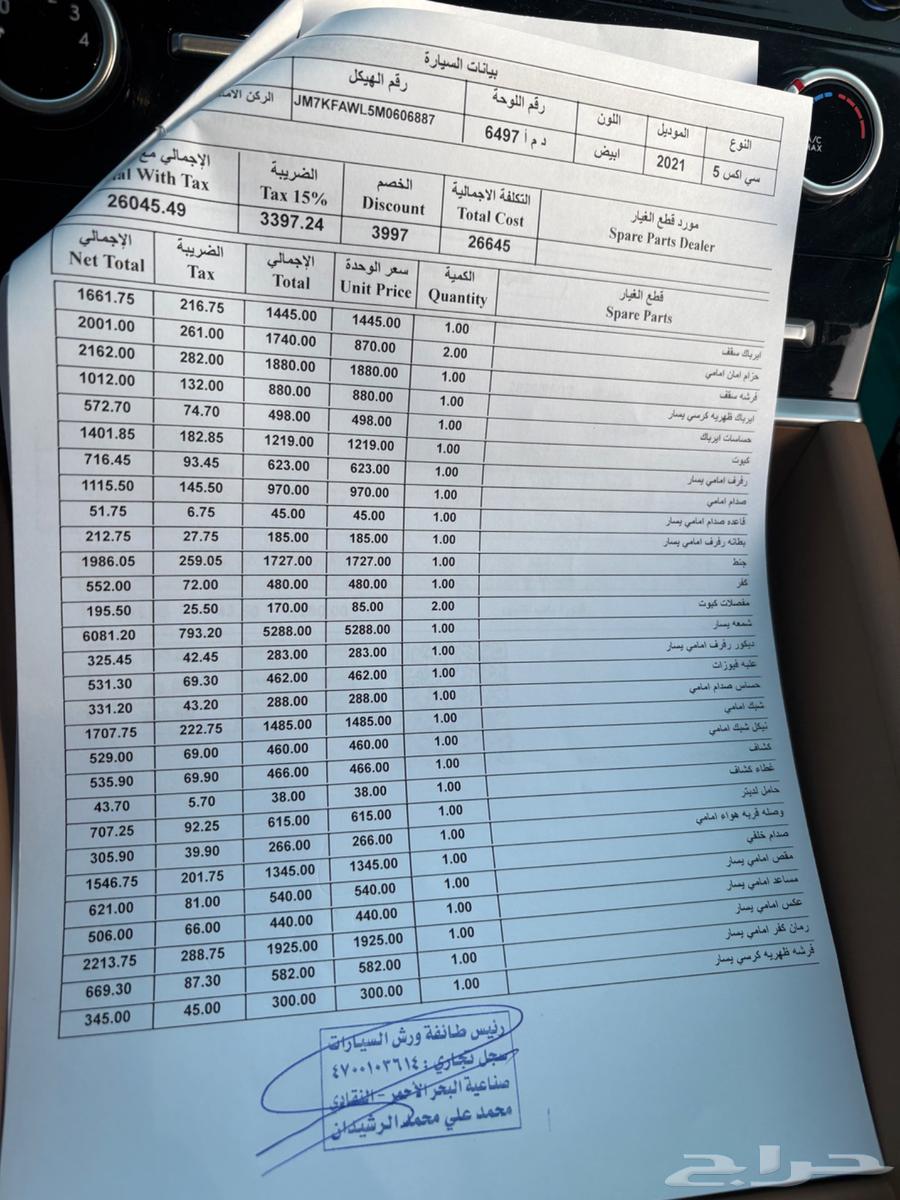 بيانات السيارة
النوع الموديل اللون رقم اللوحة رقم الهيكل
سي اكس 5 2021 ابيض د م أ 6497 JM7KFAWL5M0606887 الركن
مورد قطع الغيار التكلفة الاجمالية الخصم الضريبة الإجمالي مع
Spare Parts Dealer Total Cost Discount Tax 15% With Tax
26645 3997 3397.24 26045.49
قطع الغيار الكمية سعر الوحدة الإجمالي الضريبة الإجمالي
Spare Parts Quantity Unit Price Total Tax Net Total
ايرباك سقف 1.00 1445.00 1445.00 216.75 1661.75
حزام امان امامي 2.00 870.00 1740.00 261.00 2001.00
فرشه سقف 1.00 1880.00 1880.00 282.00 2162.00
ايرباك ظهريه كرسي يسار 1.00 880.00 880.00 132.00 1012.00
حساسات ايرباك 1.00 498.00 498.00 74.70 572.70
كبوت 1.00 1219.00 1219.00 182.85 1401.85
رفرف امامي يسار 1.00 623.00 623.00 93.45 716.45
صدام امامي 1.00 970.00 970.00 145.50 1115.50
قاعده صدام امامي يسار 1.00 45.00 45.00 6.75 51.75
بطانه رفرف امامي يسار 1.00 185.00 185.00 27.75 212.75
جنط 1.00 1727.00 1727.00 259.05 1986.05
كفر 1.00 480.00 480.00 72.00 552.00
مفصلات كبوت 2.00 85.00 170.00 25.50 195.50
شمعه يسار 1.00 5288.00 5288.00 793.20 6081.20
ديكور رفرف امامي يسار 1.00 283.00 283.00 42.45 325.45
علبه فيوزات 1.00 462.00 462.00 69.30 531.30
حساس صدام امامي 1.00 288.00 288.00 43.20 331.20
شبك امامي 1.00 1485.00 1485.00 222.75 1707.75
نيكل شبك امامي 1.00 460.00 460.00 69.00 529.00
كشاف 1.00 466.00 466.00 69.90 535.90
غطاء كشاف 1.00 38.00 38.00 5.70 43.70
حامل لديتر 1.00 615.00 615.00 92.25 707.25
وصله قربه هواء امامي 1.00 266.00 266.00 39.90 305.90
صدام خلفي 1.00 1345.00 1345.00 201.75 1546.75
مقص امامي يسار 1.00 540.00 540.00 81.00 621.00
مساعد امامي يسار 1.00 440.00 440.00 66.00 506.00
عكس امامي يسار 1.00 1925.00 1925.00 288.75 2213.75
رمان كفر امامي يسار 1.00 582.00 582.00 87.30 669.30
فرشه ظهريه كرسي يسار 1.00 300.00 300.00 45.00 345.00
رئيس طائفة ورش السيارات
سجل تجاري : ٤٧٠٠١٠٣٦١٤
صناعية البحر الأحمر - النقادي
محمد علي محمد الرشيدان
حراج
3
4
A/C
MAX